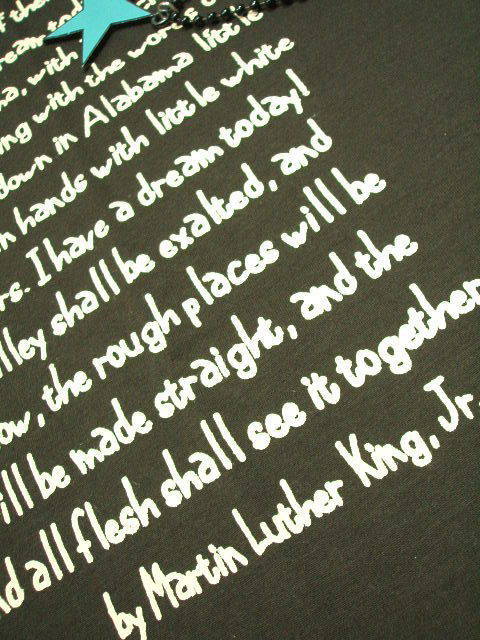 of the
ream tod
ma, with
ng with the words o
down in Alabama little
n hands with little white
rs. I have a dream today!
lley shall be exalted, and
ow, the rough places will be
ill be made straight, and the
nd all flesh shall see it together
by Martin Luther King, Jr.